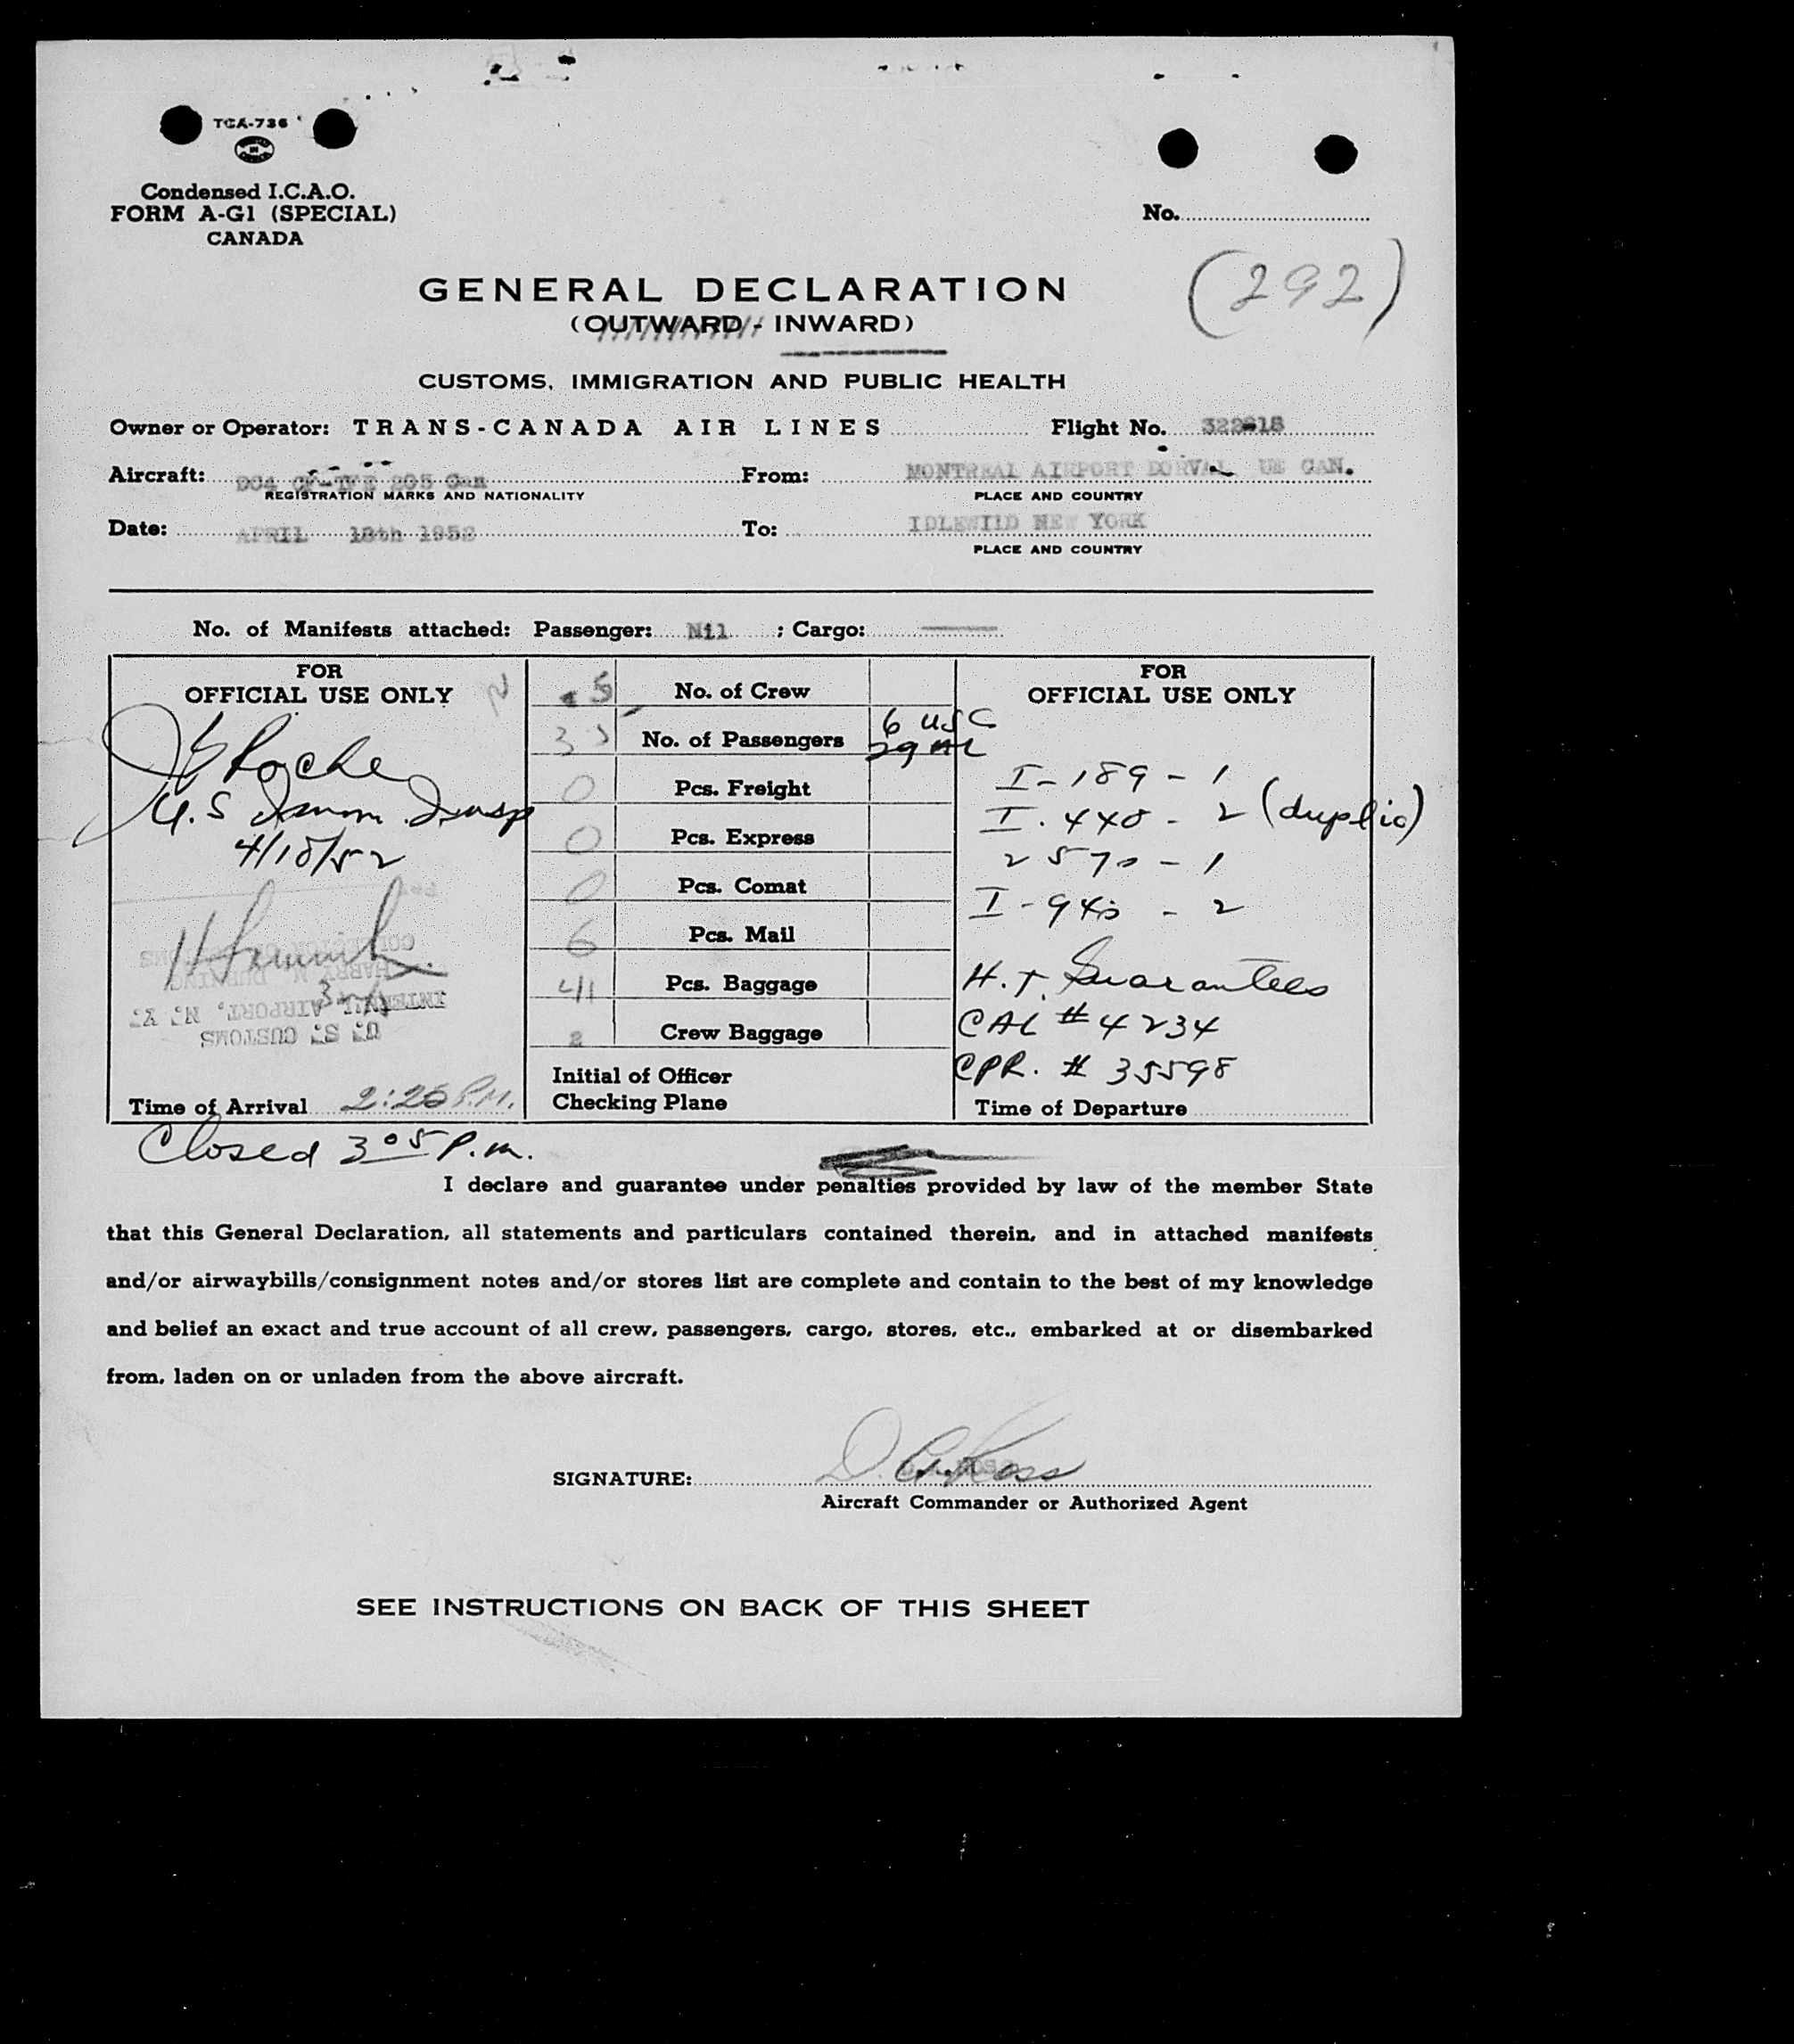 TCA-736
Condensed I.C.A.O.
FORM A-G1 (SPECIAL)
CANADA
No.
(292)
GENERAL DECLARATION
(OUTWARD - INWARD)
CUSTOMS, IMMIGRATION AND PUBLIC HEALTH
Owner or Operator: TRANS-CANADA AIR LINES Flight No.
Aircraft: DC4 CF-TFE 205 Can From: MONTREAL AIRPORT DORVAL CAN.
REGISTRATION MARKS AND NATIONALITY PLACE AND COUNTRY
Date: APRIL 18th 1952 To: IDLEWILD NEW YORK
PLACE AND COUNTRY
No. of Manifests attached: Passenger: Nil ; Cargo:
FOR
OFFICIAL USE ONLY
Roche
U.S Immn. Insp
4/18/52
COLLECTOR OF CUSTOMS
HARRY M. DURNING
INTERN'L AIRPORT, N. Y.
U. S. CUSTOMS
Time of Arrival 2:25 P.M.
5 No. of Crew
35 No. of Passengers 6 USC
29 AL
0 Pcs. Freight
0 Pcs. Express
0 Pcs. Comat
6 Pcs. Mail
41 Pcs. Baggage
2 Crew Baggage
Initial of Officer
Checking Plane
FOR
OFFICIAL USE ONLY
I-189 - 1
I. 440 - 2 (duplic)
2570 - 1
I-940 - 2
H.T. Guarantees
CAL # 4234
CPR. # 35598
Time of Departure
Closed 3 05 P.m.
I declare and guarantee under penalties provided by law of the member State
that this General Declaration, all statements and particulars contained therein, and in attached manifests
and/or airwaybills/consignment notes and/or stores list are complete and contain to the best of my knowledge
and belief an exact and true account of all crew, passengers, cargo, stores, etc., embarked at or disembarked
from, laden on or unladen from the above aircraft.
SIGNATURE: D. A. Ross
Aircraft Commander or Authorized Agent
SEE INSTRUCTIONS ON BACK OF THIS SHEET